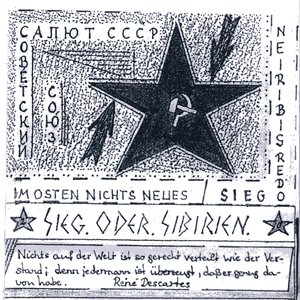 САЛЮТ СССР
СОВЕТСКИЙ
СОЮЗ
IM OSTEN NICHTS NEUES / SIEG
ODERSIBIRIEN
SIEG. ODER. SIBIRIEN.
Nichts auf der Welt ist so gerecht verteilt wie der Ver-
stand; denn jedermann ist überzeugt, daß er genug da-
von habe. René Descartes